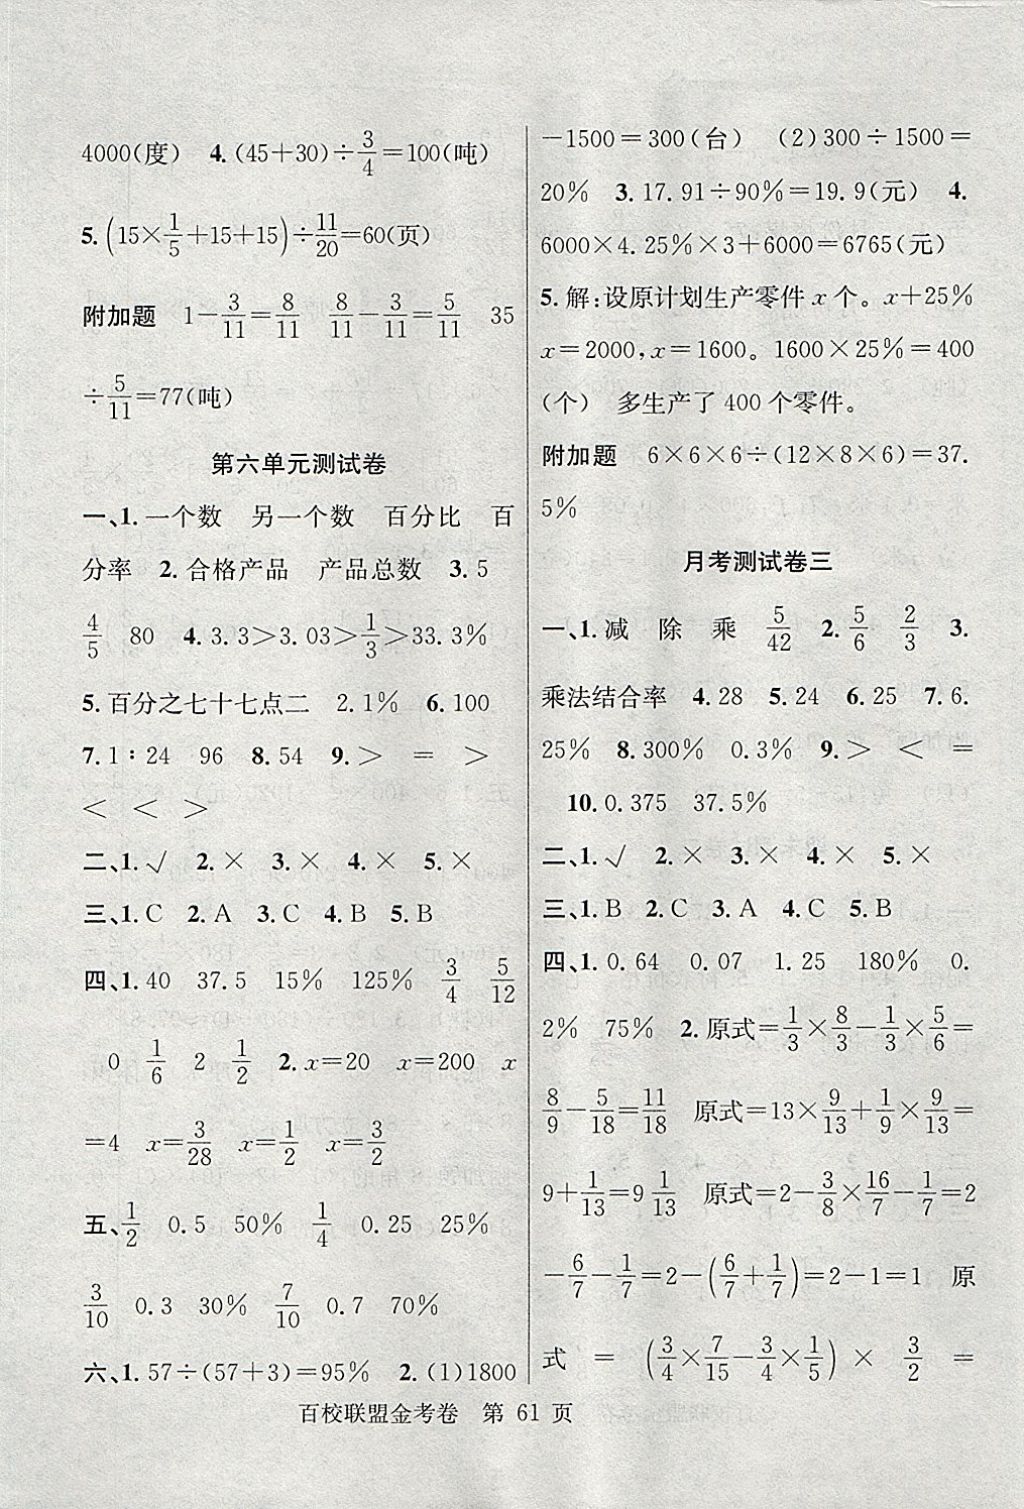 4000(度)　4.(45+30)÷3/4=100(吨)
5.(15×1/5+15+15)÷11/20=60(页)
附加题　1-3/11=8/11　8/11-3/11=5/11　35
÷5/11=77(吨)
第六单元测试卷
一、1.一个数　另一个数　百分比　百
分率　2.合格产品　产品总数　3.5
4/5　80　4.3.3>3.03>1/3>33.3%
5.百分之七十七点二　2.1%　6.100
7.1∶24　96　8.54　9.>　=　>
<　<　>
二、1.√　2.×　3.×　4.×　5.×
三、1.C　2.A　3.C　4.B　5.B
四、1.40　37.5　15%　125%　3/4　5/12
0　1/6　2　1/2　2.x=20　x=200　x
=4　x=3/28　x=1/2　x=3/2
五、1/2　0.5　50%　1/4　0.25　25%
3/10　0.3　30%　7/10　0.7　70%
六、1.57÷(57+3)=95%　2.(1)1800
-1500=300(台)　(2)300÷1500=
20%　3.17.91÷90%=19.9(元)　4.
6000×4.25%×3+6000=6765(元)
5.解:设原计划生产零件x个。x+25%
x=2000,x=1600。1600×25%=400
(个)　多生产了400个零件。
附加题　6×6×6÷(12×8×6)=37.
5%
月考测试卷三
一、1.减　除　乘　5/42　2.5/6　2/3　3.
乘法结合率　4.28　5.24　6.25　7.6.
25%　8.300%　0.3%　9.>　<　=
10.0.375　37.5%
二、1.√　2.×　3.×　4.×　5.×
三、1.B　2.C　3.A　4.C　5.B
四、1.0.64　0.07　1.25　180%　0.
2%　75%　2.原式=1/3×8/3-1/3×5/6=
8/9-5/18=11/18　原式=13×9/13+1/9×9/13=
9+1/13=9 1/13　原式=2-3/8×16/7-1/7=2
-6/7-1/7=2-(6/7+1/7)=2-1=1　原
式=(3/4×7/15-3/4×1/5)×3/2=
百校联盟金考卷　第 61 页